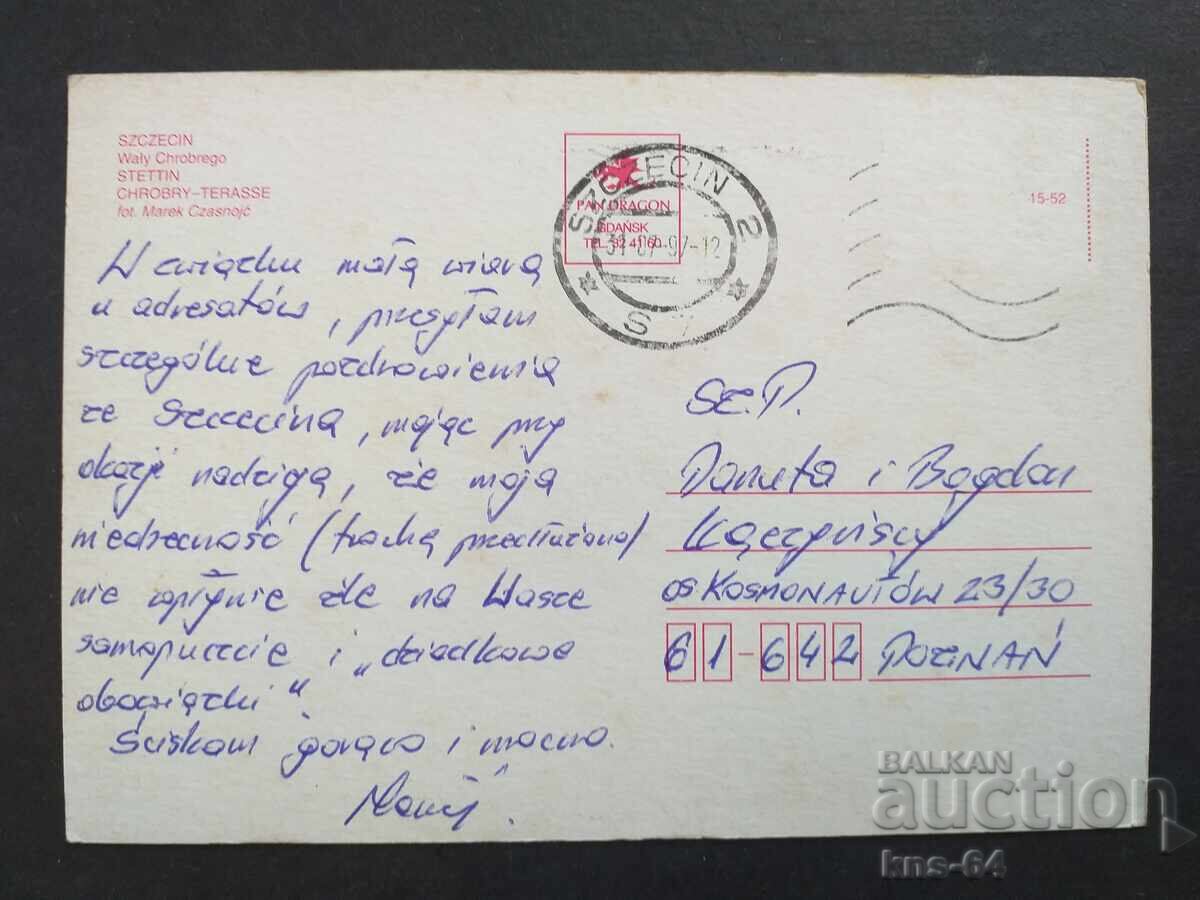 SZCZECIN
Wały Chrobrego
STETTIN
CHROBRY–TERASSE
fot. Marek Czasnojć
PAN DRAGON
GDAŃSK
TEL. 32 41 60
SZCZECIN 2
31-07-97-12
S 7
15-52
W związku małą wiarą
u adresatów, przesyłam
szczególne pozdrowienia
ze Szczecina, mając przy
okazji nadzieję, że moja
nieobecność (trochę przedłużana)
nie wpłynie źle na Wasze
samopuczcie i „dziadkowe
obowiązki".
Ściskam gorąco i mocno.
Sz.P.
Danuta i Bogdan
os. KOSMONAUTÓW 23/30
61-642 POZNAŃ
BALKAN
auction
kns-64